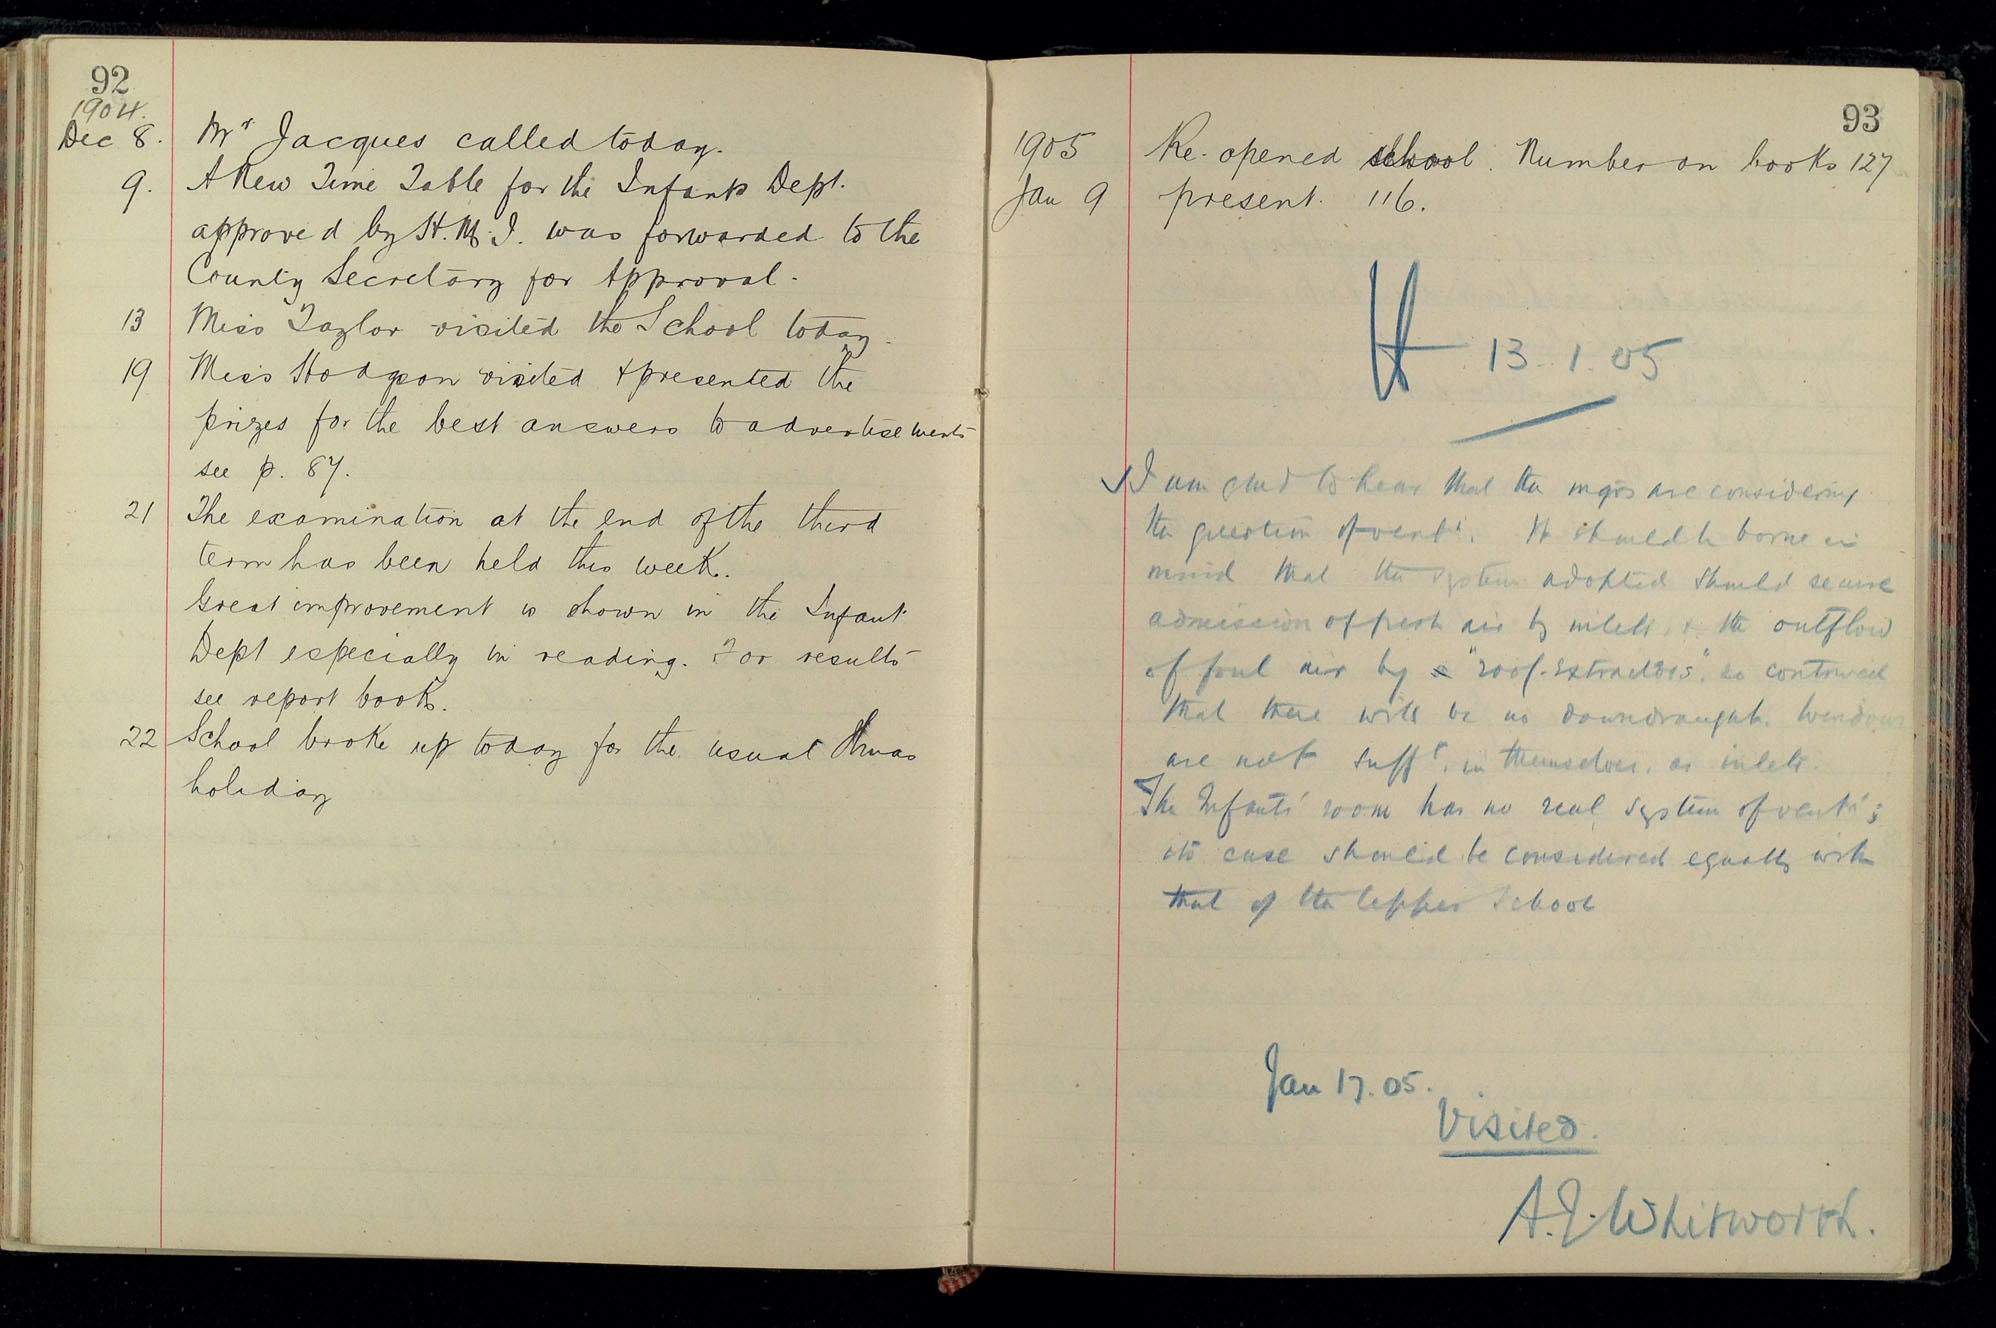 92
1904.
Dec 8. Mr Jacques called today.
9. A New Time Table for the Infants Dept.
approved by H.M.I. was forwarded to the
County Secretary for Approval.
13 Miss Taylor visited the School today.
19 Miss Hodgson visited & presented the
prizes for the best answers to advertisements
see p. 87.
21 The examination at the end of the third
term has been held this week.
Great improvement is shown in the Infant
Dept especially in reading. For results
see report book.
22 School broke up today for the usual Xmas
holiday
93
1905 Re-opened school. Number on books 127
Jan 9 present. 116.
13.1.05
I am glad to hear that the mgrs are considering
the question of ventn. It should be borne in
mind that the system adopted should secure
admission of fresh air by inlets, & the outflow
of foul air by "roof-extractors" so contrived
that there will be no downdraught. Windows
are not sufft. in themselves, as inlets.
The Infants' room has no real system of ventn;
its case should be considered equally with
that of the Upper School
Jan 17.05.
Visited.
A.J. Whitworth.